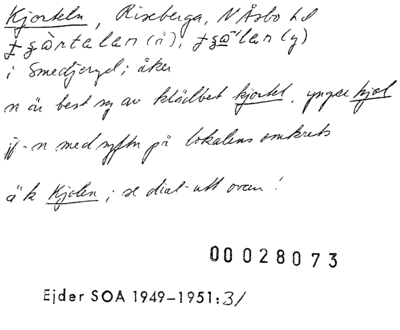 Kjorteln, Riseberga, N Åsbo hd
i Smedjeryd; åker
n är best sg av klädbet kjortel, yngre kjol
jfr -n med syftn på lokalens omkrets
äk Kjolen; se dial-utt ovan!
00028073
Ejder SOA 1949-1951:31